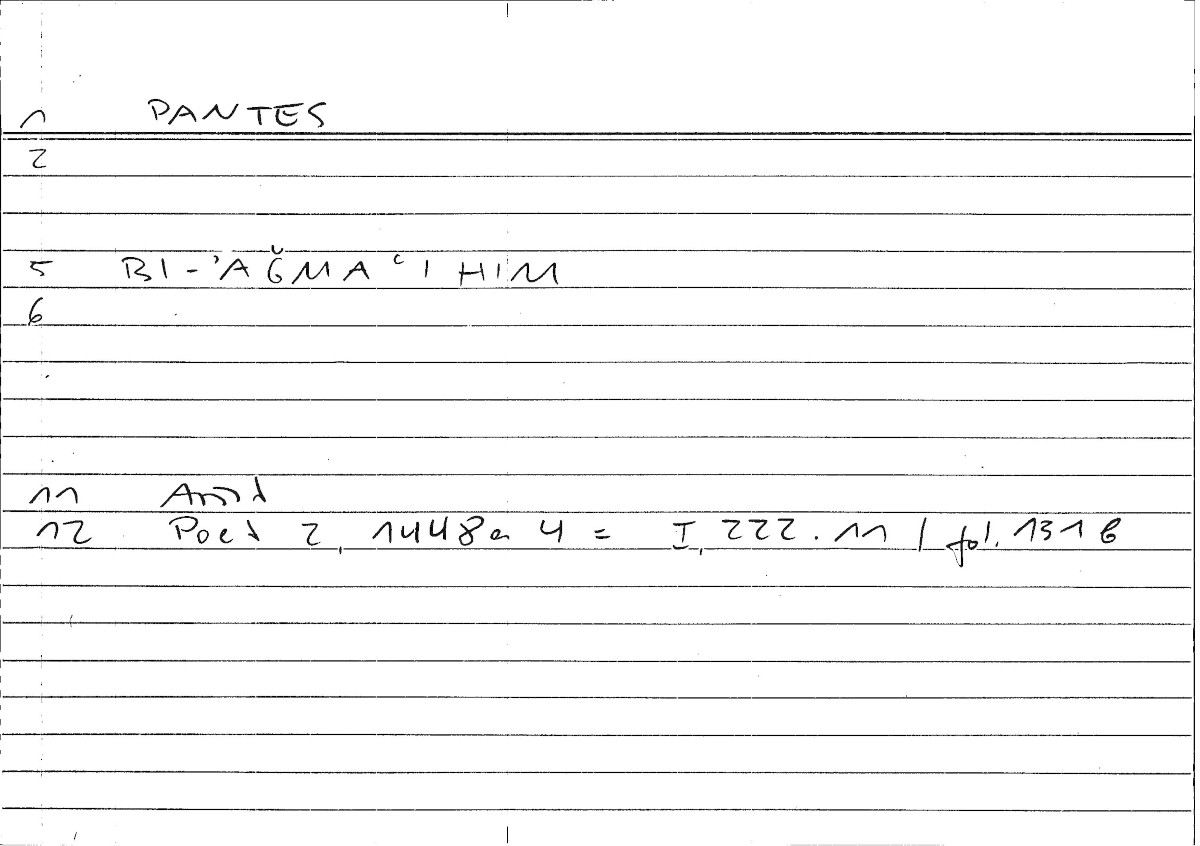 1 PANTES
2
5 BI-ʾAĞMAʿIHIM
6
11 Arist
12 Poet 2, 1448a 4 = I, 222.11 / fol. 131b